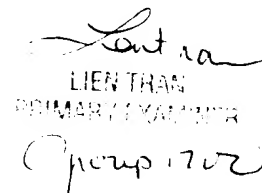 LIEN TRAN
PRIMARY EXAMINER
Group 1702